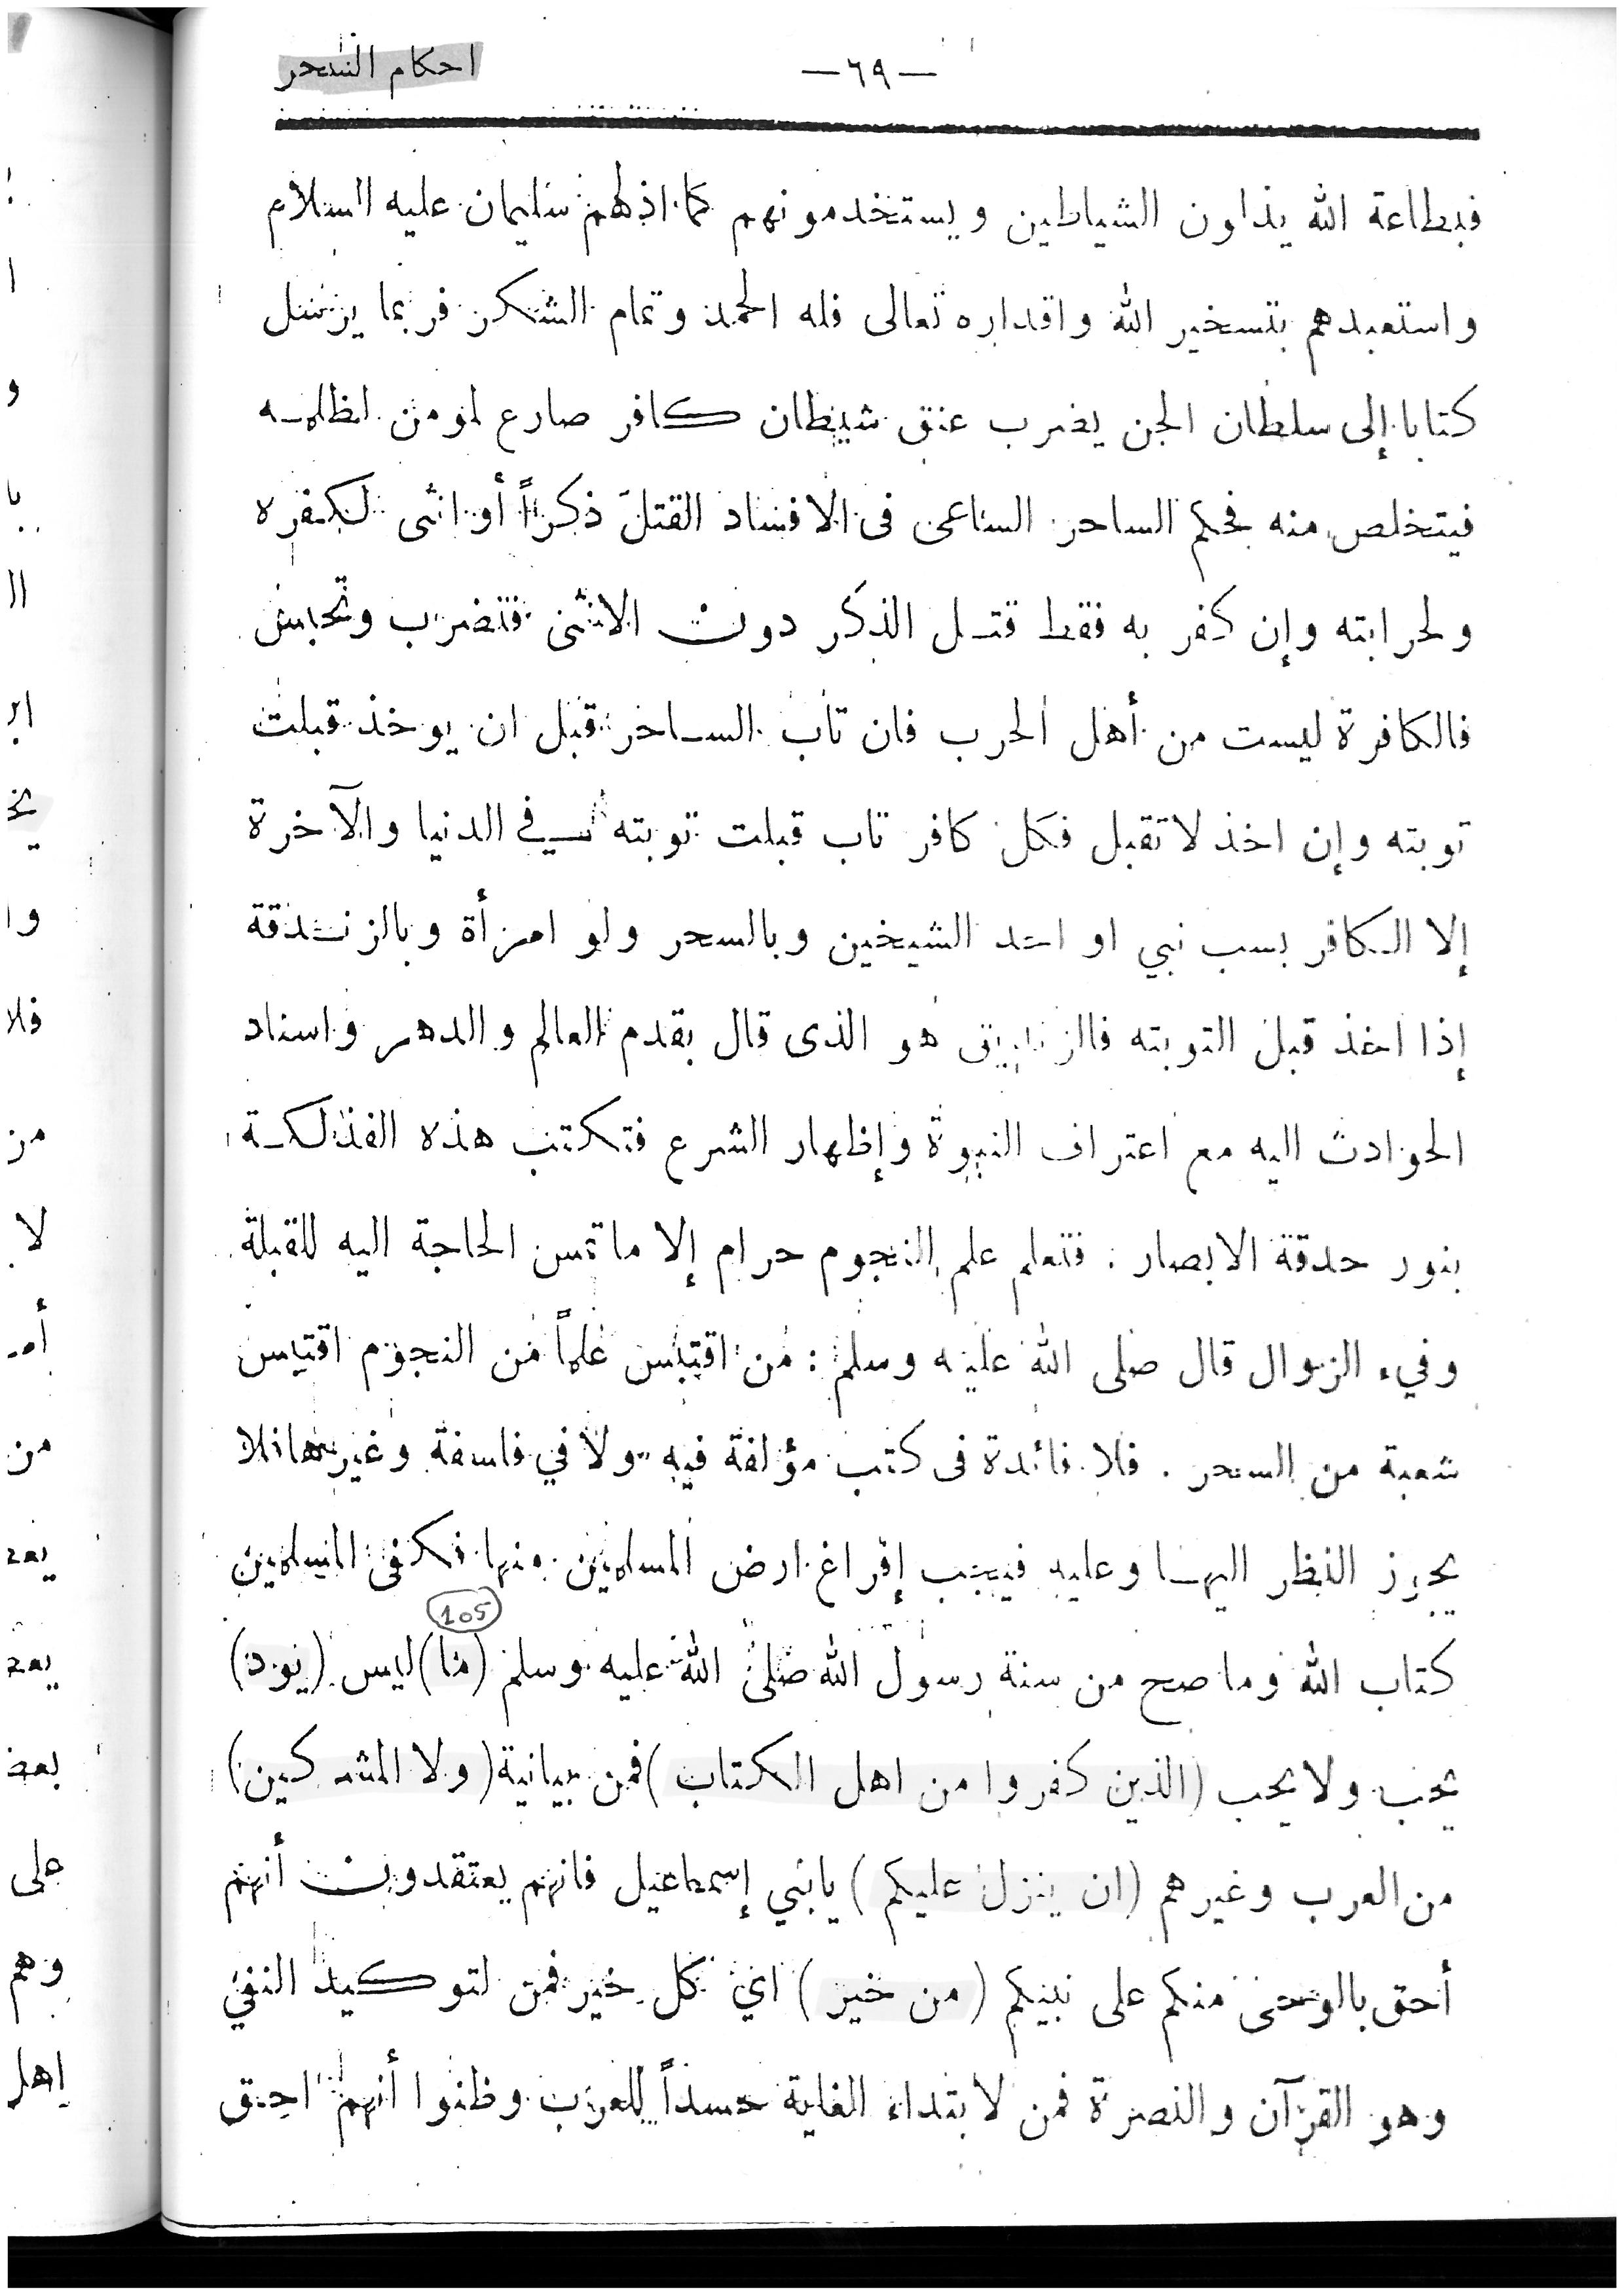 احكام السحر
—٦٩—
فبطاعة الله يذلون الشياطين ويستخدمونهم كما اذلهم سليمان عليه السلام
واستعبدهم بتسخير الله واقداره تعالى فله الحمد وتمام الشكر فربما يرسل
كتابا إلى سلطان الجن يضرب عنق شيطان كافر صارع لمومن لظلمه
فيتخلص منه فحكم الساحر الساعى فى الافساد القتل ذكراً أو انثى لكفره
ولحرابته وإن كفر به فقط قتل الذكر دون الانثى فتضرب وتحبس
فالكافرة ليست من أهل الحرب فان تاب الساحر قبل ان يوخذ قبلت
توبته وإن اخذ لا تقبل فكل كافر تاب قبلت توبته في الدنيا والآخرة
إلا الكافر بسب نبي او احد الشيخين وبالسحر ولو امرأة وبالزندقة
إذا اخذ قبل التوبته فالزنديق هو الذى قال بقدم العالم والدهر واسناد
الحوادث اليه مع اعتراف النبوة وإظهار الشرع فتكتب هذه الفذلكة
بنور حدقة الابصار : فتعلم علم النجوم حرام إلا ما تمس الحاجة اليه للقبلة
وفيء الزوال قال صلى الله عليه وسلم : من اقتبس علماً من النجوم اقتبس
شعبة من السحر . فلا فائدة فى كتب مؤلفة فيه ولا في فلسفة وغيرها فلا
يجوز النظر اليها وعليه فيجب إفراغ ارض المسلمين منها فكفى المسلمين
كتاب الله وما صح من سنة رسول الله صلى الله عليه وسلم (ما) ليس (يود)
105
يحب ولا يحب (الذين كفروا من اهل الكتاب) فمن بيانية (ولا المشركين)
من العرب وغيرهم (ان ينزل عليكم) يابني إسماعيل فانهم يعتقدون أنهم
أحق بالوحى منكم على نبيكم (من خير) اي كل خير فمن لتوكيد النفي
وهو القرآن والنصرة فمن لابتداء الغاية حسداً للعرب وظنوا أنهم احق